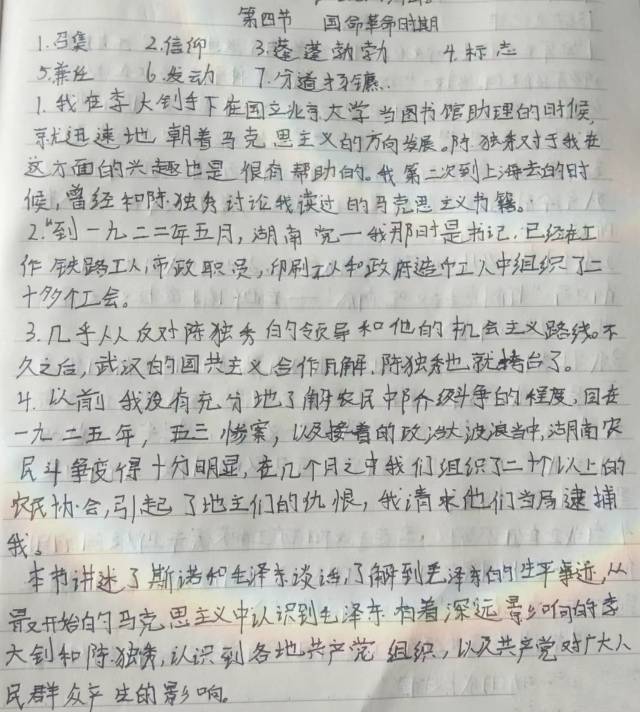 第四节 国命革命时期
1.召集 2.信仰 3.蓬蓬勃勃 4.标志
5.兼任 6.发动 7.分道扬镳.
1.我在李大钊手下在国立北京大学当图书馆助理的时候,
就迅速地朝着马克思主义的方向发展。陈独秀对于我在
这方面的兴趣也是很有帮助的。我第二次到上海去的时
候,曾经和陈独秀讨论我读过的马克思主义书籍。
2."到一九二二年五月,湖南党一我那时是书记.已经在工
作铁路工人,市政职员,印刷工人和政府造币工人中组织了二
十多个工会。
3.几乎人人反对陈独秀的领导和他的机会主义路线。不
久之后,武汉的国共主义合作瓦解,陈独秀也就垮台了。
4.以前我没有充分地了解农民中阶级斗争的程度,回在
一九二五年,五三惨案,以及接着的政治大波浪当中,湖南农
民斗争变得十分明显,在几个月之中我们组织了二十个以上的
农民协会,引起了地主们的仇恨,我请求他们当局逮捕
我。
本书讲述了斯诺和毛泽东谈话,了解到毛泽东的生平事迹,从
最开始的马克思主义中认识到毛泽东有着深远影响的李
大钊和陈独秀,认识到各地共产党组织,以及共产党对广大人
民群众产生的影响。